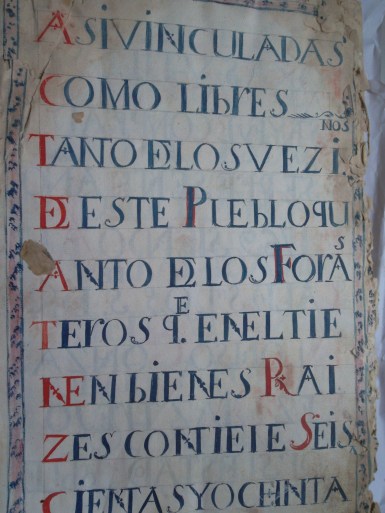 ASI VINCULADAS
COMO LIbRES
TANTO DE LOS VEZINOS
DE ESTE PUEbLO qU
ANTO DE LOS FORAS
TEROS q.E EN EL TIE
NEN bIENES RAI
ZES CONTIENE SEIS
CIENTAS Y OCHENTA